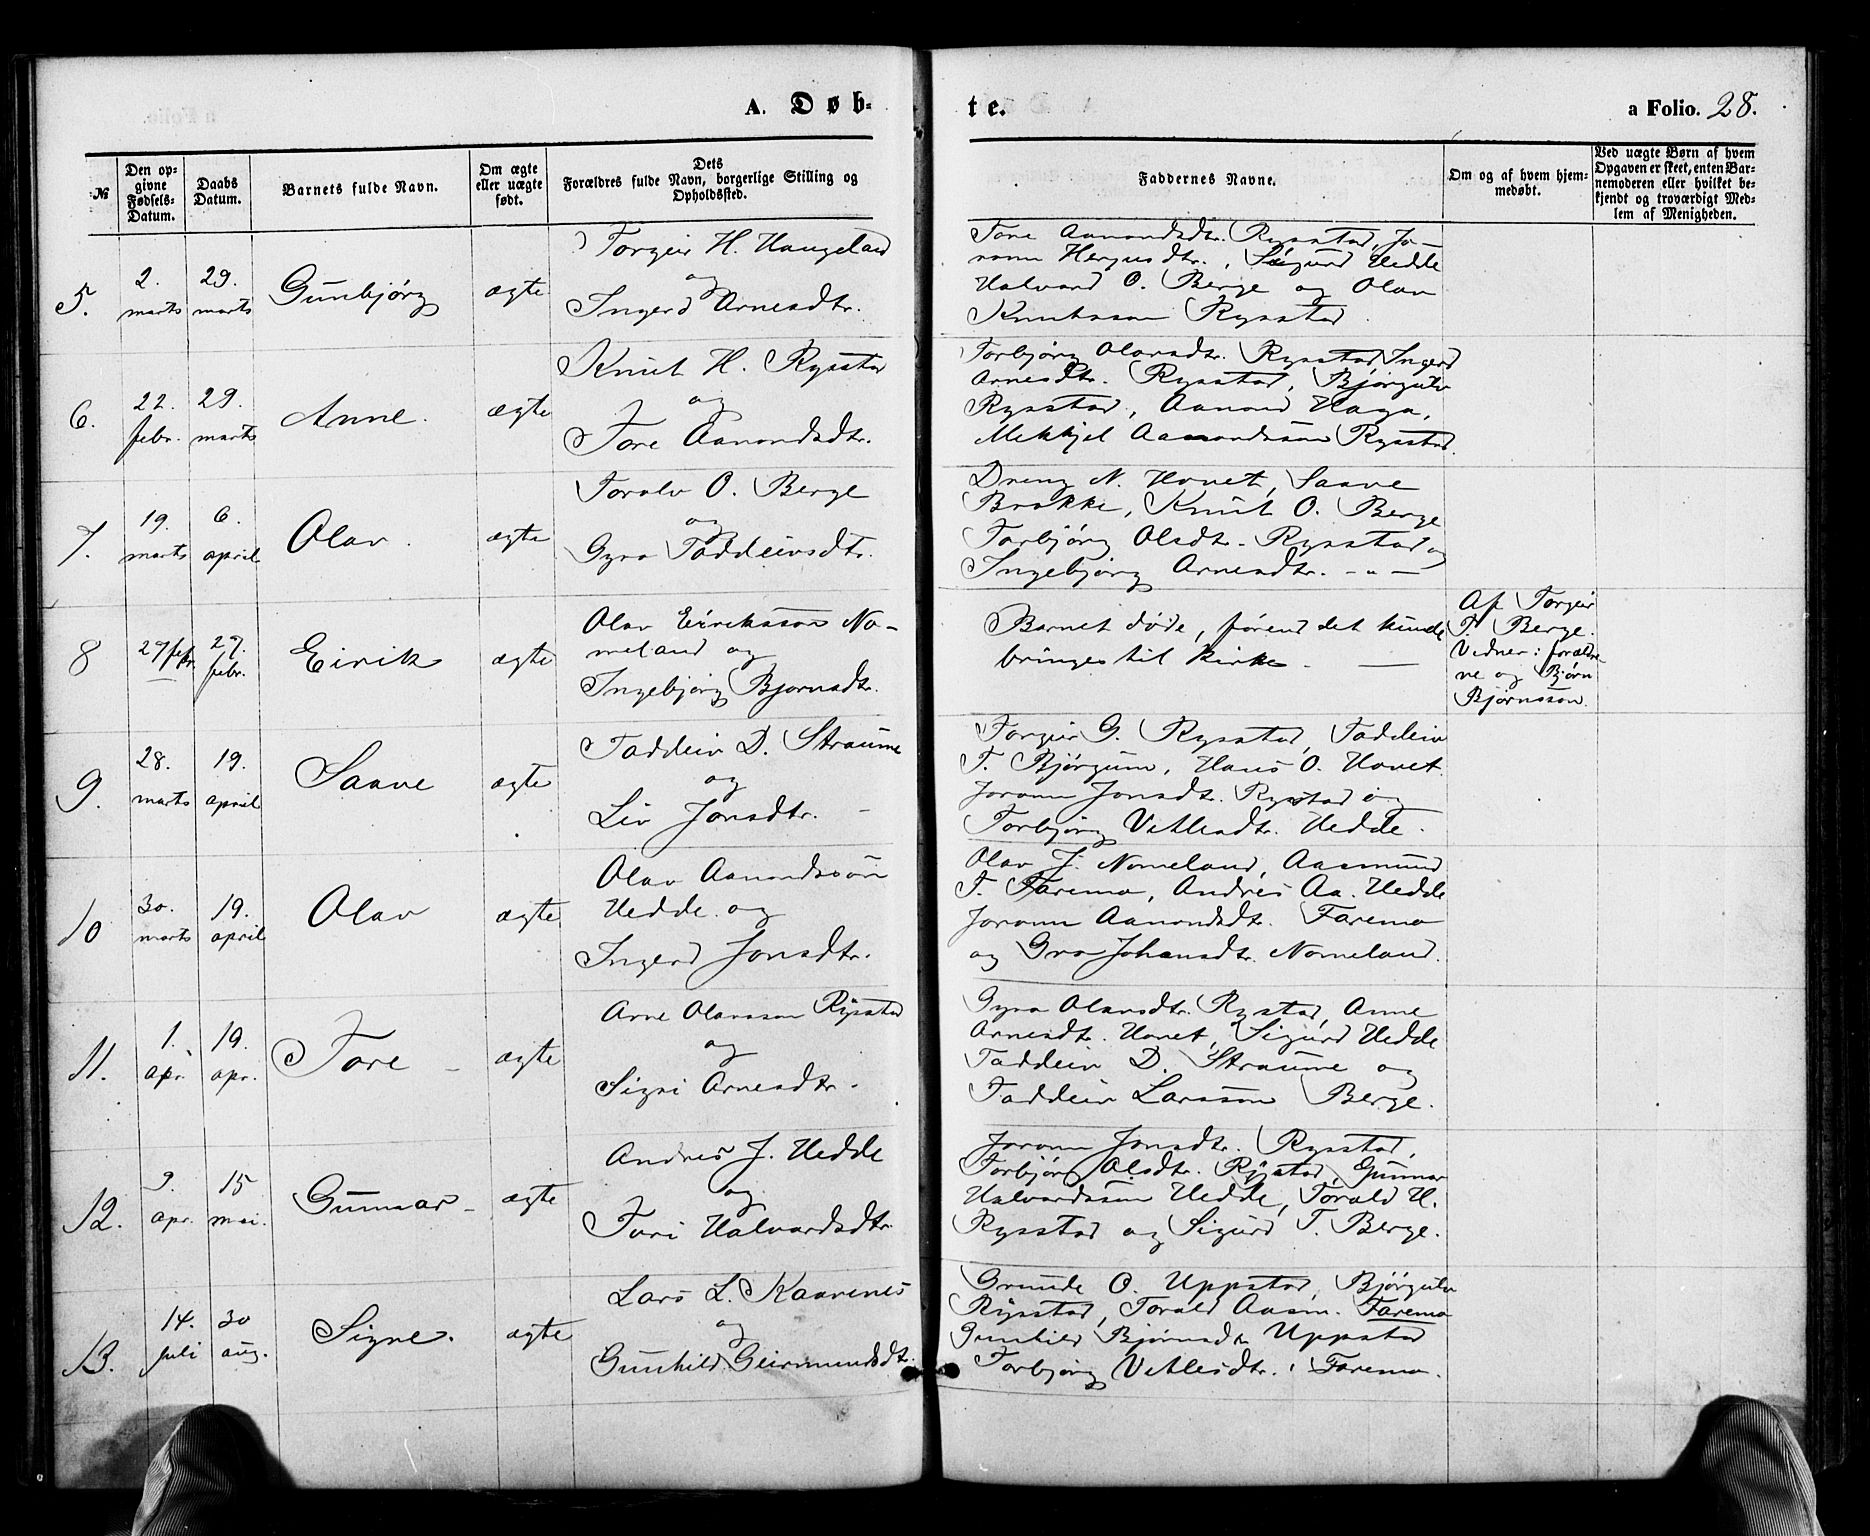 A. Døb-
te.
a Folio. 28.
№
Den op-
givne
Fødsels-
Datum.
Daabs
Datum.
Barnets fulde Navn.
Om ægte
eller uægte
født.
Dets
Forældres fulde Navn, borgerlige Stilling og
Opholdssted.
Faddernes Navne.
Om og af hvem hjem-
medøbt.
Ved uægte Børn af hvem
Opgaven er skeet, enten Bar-
nemoderen eller hvilket be-
kjendt og troværdigt Med-
lem af Menigheden.
5.
2.
marts
29.
marts
Gunbjørg
ægte
Torgeir H. Haugeland
og
Ingerd Arnesdtr.
Tore Aanondsdtr. Rysstad, Jo-
ronn Hergusdtr., Sigurd Hedde
Halvard O. Berge og Olav
Knutsson Rysstad.
6.
22.
febr.
29.
marts
Anne.
ægte
Knut H. Rysstad
og
Tore Aanondsdtr.
Torbjørg Olavsdtr. Rysstad, Ingerd
Arnesdtr. Rysstad, Bjørgulv
Rysstad, Aanond Haga,
Mekkjel Aanondsson Rysstad.
7.
19.
marts
6.
april
Olav.
ægte
Toralv O. Berge
og
Gyro Taddeivsdtr.
Dreng N. Hovet, Saave
Brokke, Knut O. Berge
Torbjørg Olsdtr. Rysstad og
Ingebjørg Arnesdtr. - „ -
8
27 febr.
27.
febr.
Eirik
ægte
Olav Eiriksson No-
meland og
Ingebjørg Bjørnsdtr.
Barnet døde, førend det kunde
bringes til Kirke. —
Af Torgeir
T. Berge.
Vidner: foreldre-
ne og Bjørn
Bjørnsson.
9.
28.
marts
19.
april
Saave
ægte
Taddeiv D. Straume
og
Liv Jonsdtr. -
Torgeir G. Rysstad, Taddeiv
T. Bjørgum, Hans O. Hovet
Joronn Jonsdtr. Rysstad og
Torbjørg Vetlesdtr. Hedde.
10
30.
marts
19.
april
Olav
ægte
Olav Aanondsson
Hedde og
Ingerd Jonsdtr.
Olav J. Nomeland, Aasmund
T. Faremo, Andres Aa. Hedde
Joronn Aanondsdtr. Faremo
og Gro Johansdtr. Nomeland.
11.
1.
apr.
19.
apr.
Tore -
ægte
Arne Olavsson Rysstad
og
Signi Arnesdtr.
Gyro Olavsdtr. Rystad, Anne
Arnesdt. Hovet, Sigurd Hedde
Taddeiv D. Straume og
Taddeiv Larsson Berge.
12.
9.
apr.
15
mai.
Gunnar -
ægte
Andres J. Hedde
og
Turi Halvardsdtr.
Joronn Jonsdtr. Rysstad,
Torbjørg Olsdtr. Rysstad, Gunnar
Halvardsson Hedde, Torald H.
Rysstad og Sigurd T. Berge.
13.
14.
juli
30
aug.
Signe.
ægte
Lars L. Kaavenes
og
Gunhild Geirmundsdtr.
Grunde O. Uppstad, Bjørgulv
Rysstad, Torald Aasm. Faremo
Gunhild Bjørnsdtr Uppstad
Torbjørg Vetlesdtr. Faremo.